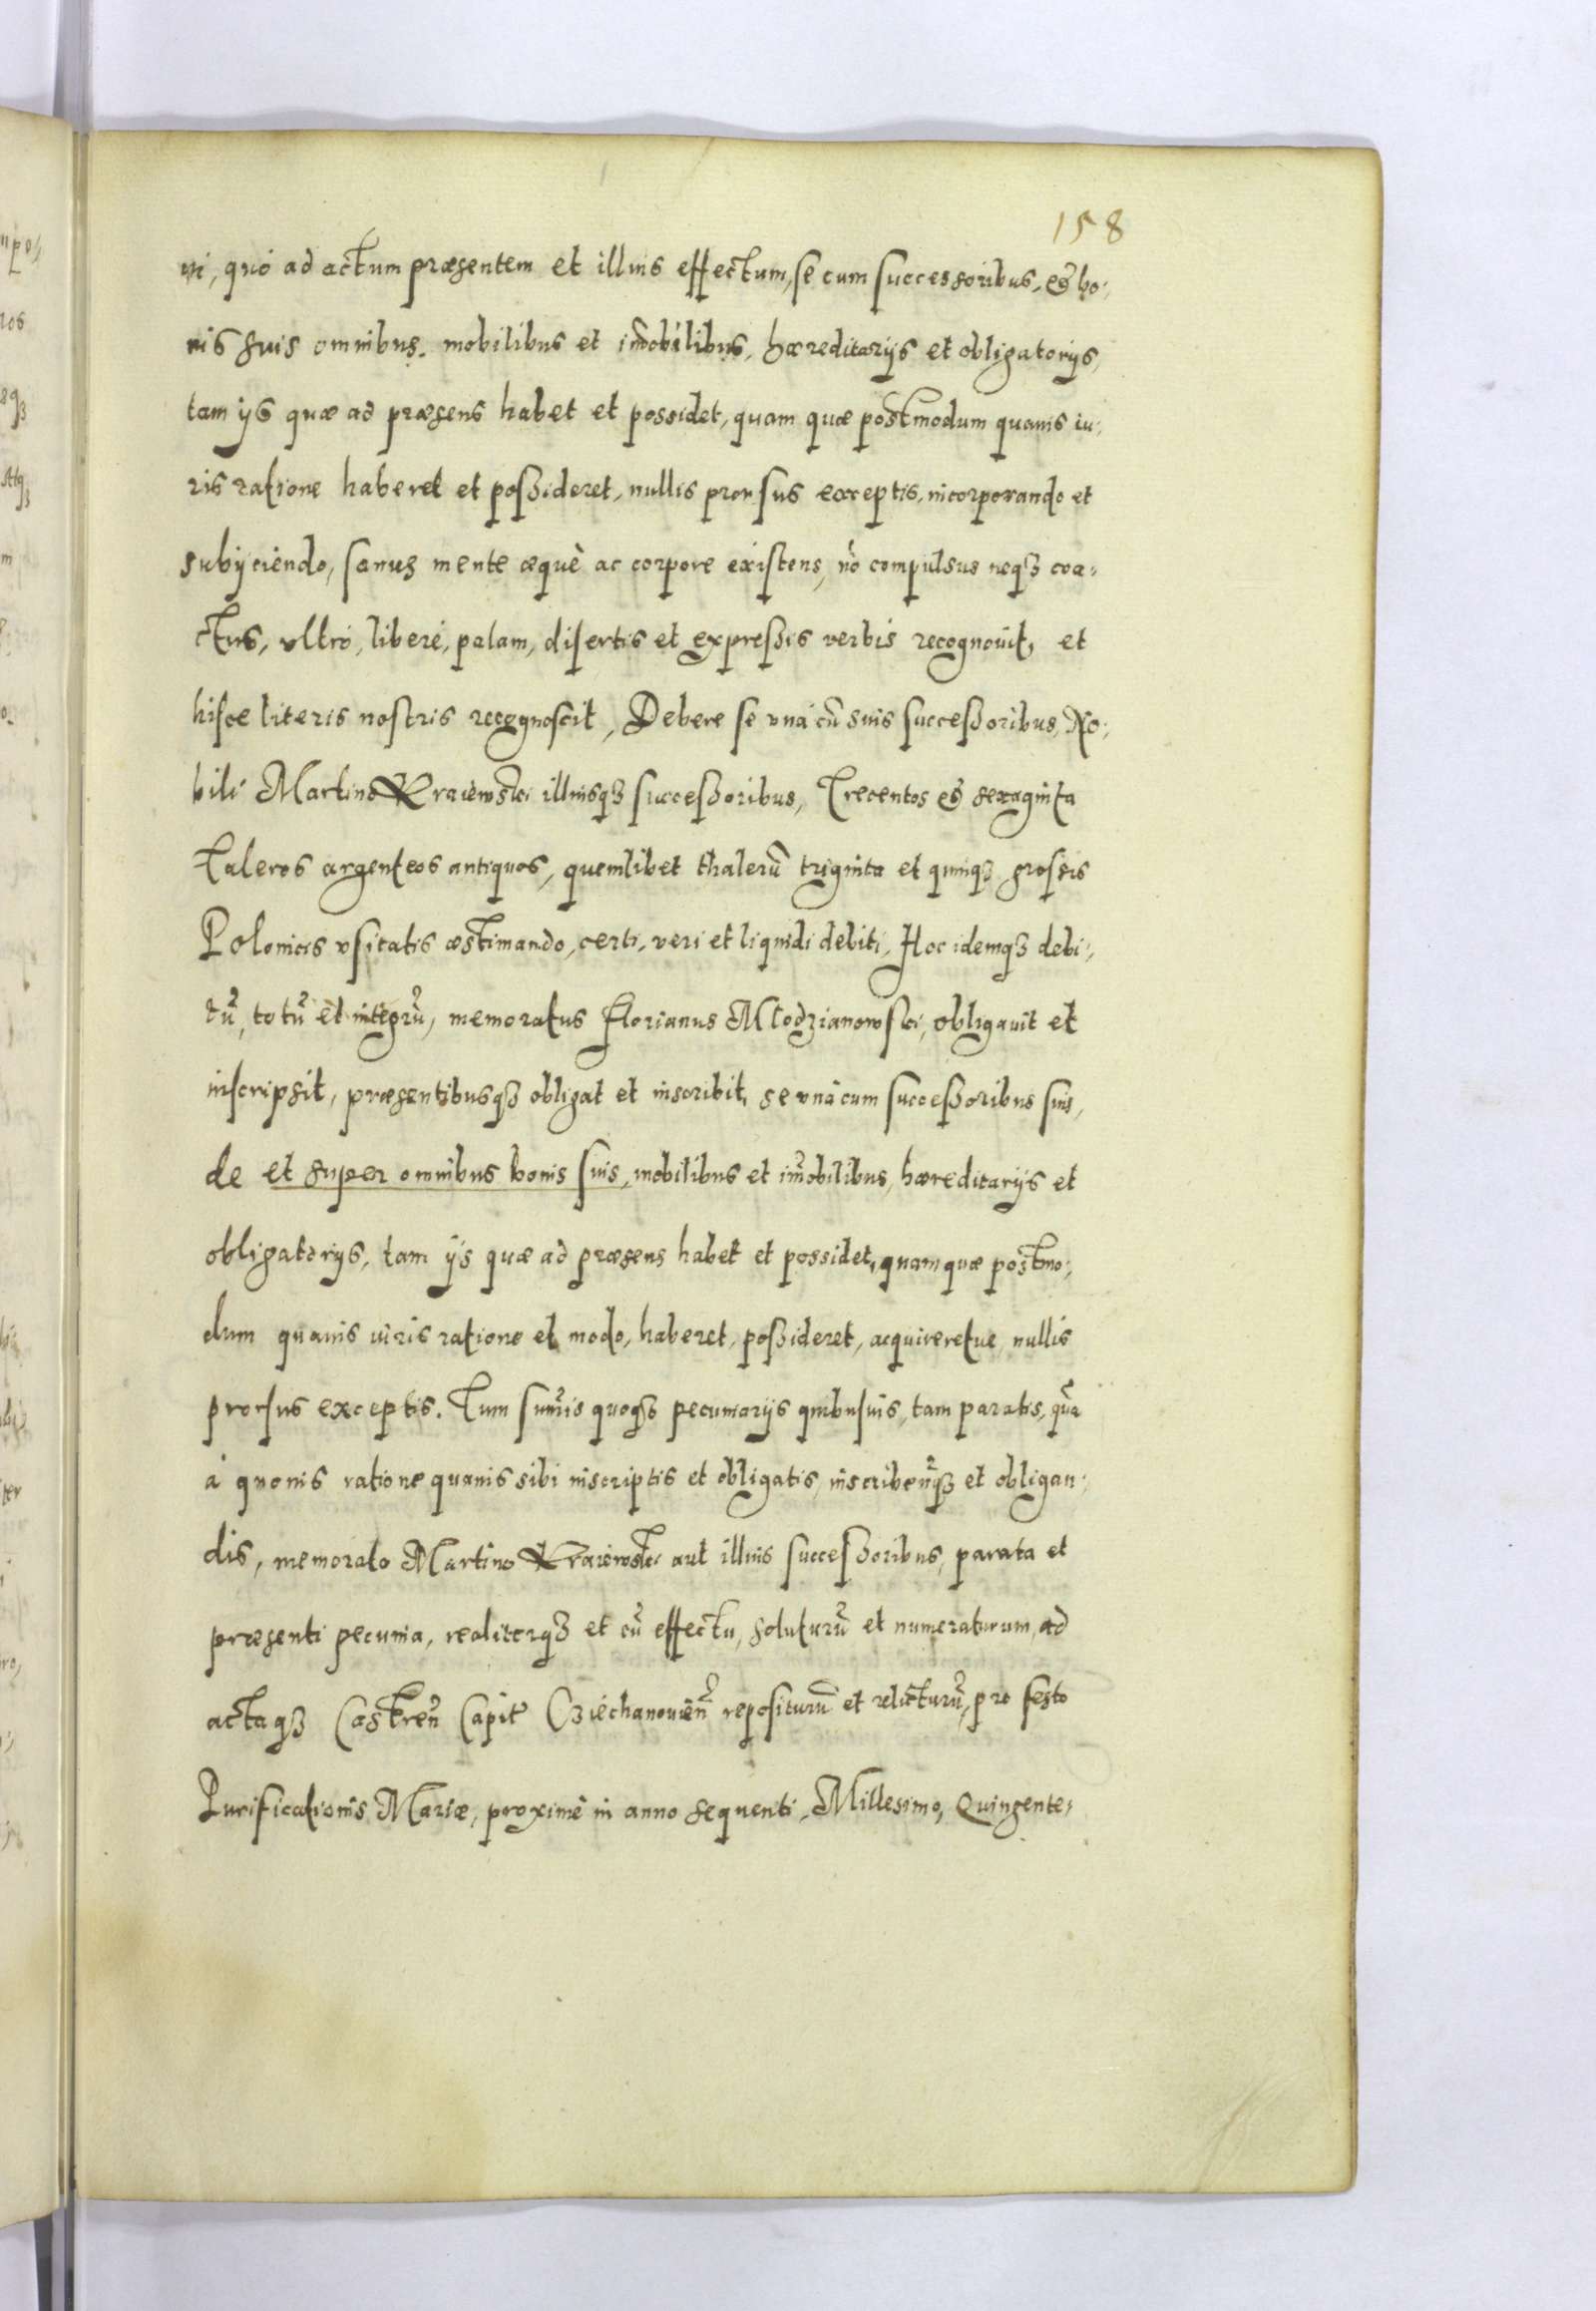 158
ni, quò ad actum præsentem et illius effectum, se cum successoribus, et bo:
nis suis omnibus, mobilibus et im̃obilibus, hæreditarijs et obligatorijs,
tam ijs quæ ad præsens habet et possidet, quam quæ postmodum quauis iu:
ris ratione haberet et possideret, nullis prorsus exceptis, incorporando et
subijciendo, sanus mente æquè ac corpore existens, nõ compulsus neq3 coa:
ctus, vltrò, liberè, palam, disertis et expressis verbis recognouit, et
hisce literis nostris recognoscit, Debere se vnà cũ suis successoribus, No:
bili Martino Kraiewski illiusq3 successoribus, Trecentos et sexaginta
Taleros argenteos antiquos, quemlibet thalerũ triginta et quinq3 grossis
Polonicis vsitatis æstimando, certi, veri et liquidi debiti, Hoc idemq3 debi:
tũ, totũ et integrũ, memoratus Florianus Mlodzianowski, obligauit et
inscripsit, præsentibusq3 obligat et inscribit, se vnà cum successoribus suis,
de et super omnibus bonis suis, mobilibus et im̃obilibus, hæreditarijs et
obligatorijs, tam ijs quæ ad præsens habet et possidet, quam quæ postmo:
dum quauis iuris ratione et modo, haberet, possideret, acquireretue, nullis
prorsus exceptis. Tum sum̃is quoq3 pecuniarijs quibusuis, tam paratis, quã
à quouis ratione quauis sibi inscriptis et obligatis, inscribenq̃3 et obligan:
dis, memorato Martino Kraiewski aut illius successoribus, parata et
præsenti pecunia, realiterq3 et cũ effectu, soluturũ et numeraturum, ad
actaq3 Castren̄ Capit̄ Cziechanouien̄ repositurũ et relicturũ, pro festo
Purificationis Mariæ, proximè in anno sequenti, Millesimo, Quingente: